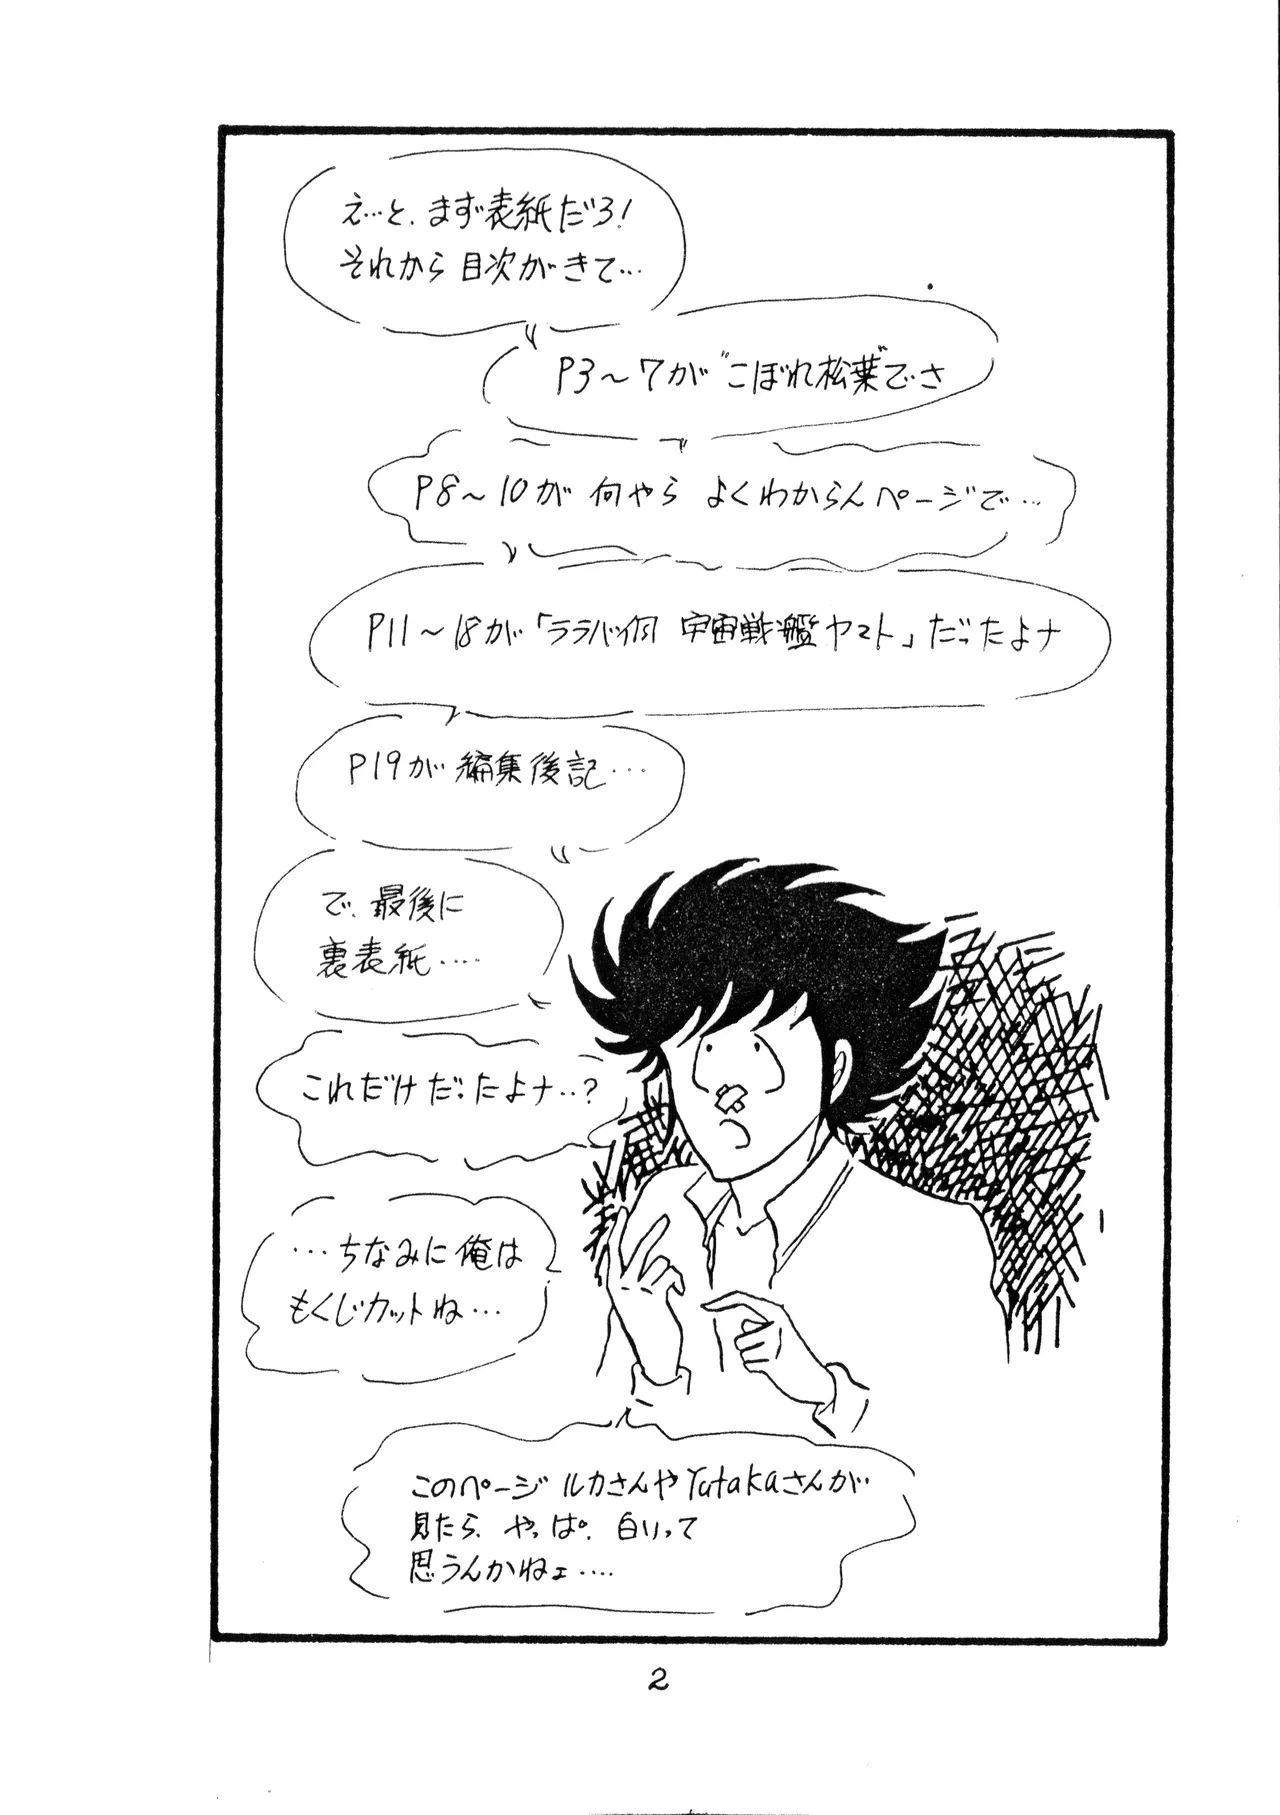 え…と、まず表紙だろ!
それから目次がきて…
P3～7が"こぼれ松葉"でさ
P8～10が何やらよくわからんページで…
P11～18が「ララバイ 宇宙戦艦ヤマト」だったよナ
P19が編集後記…
で、最後に
裏表紙….
これだけだったよナ‥?
…ちなみに俺は
もくじカットね…
このページルカさんやYutakaさんが
見たら、やっぱ。白いって
思うんかねェ….
2